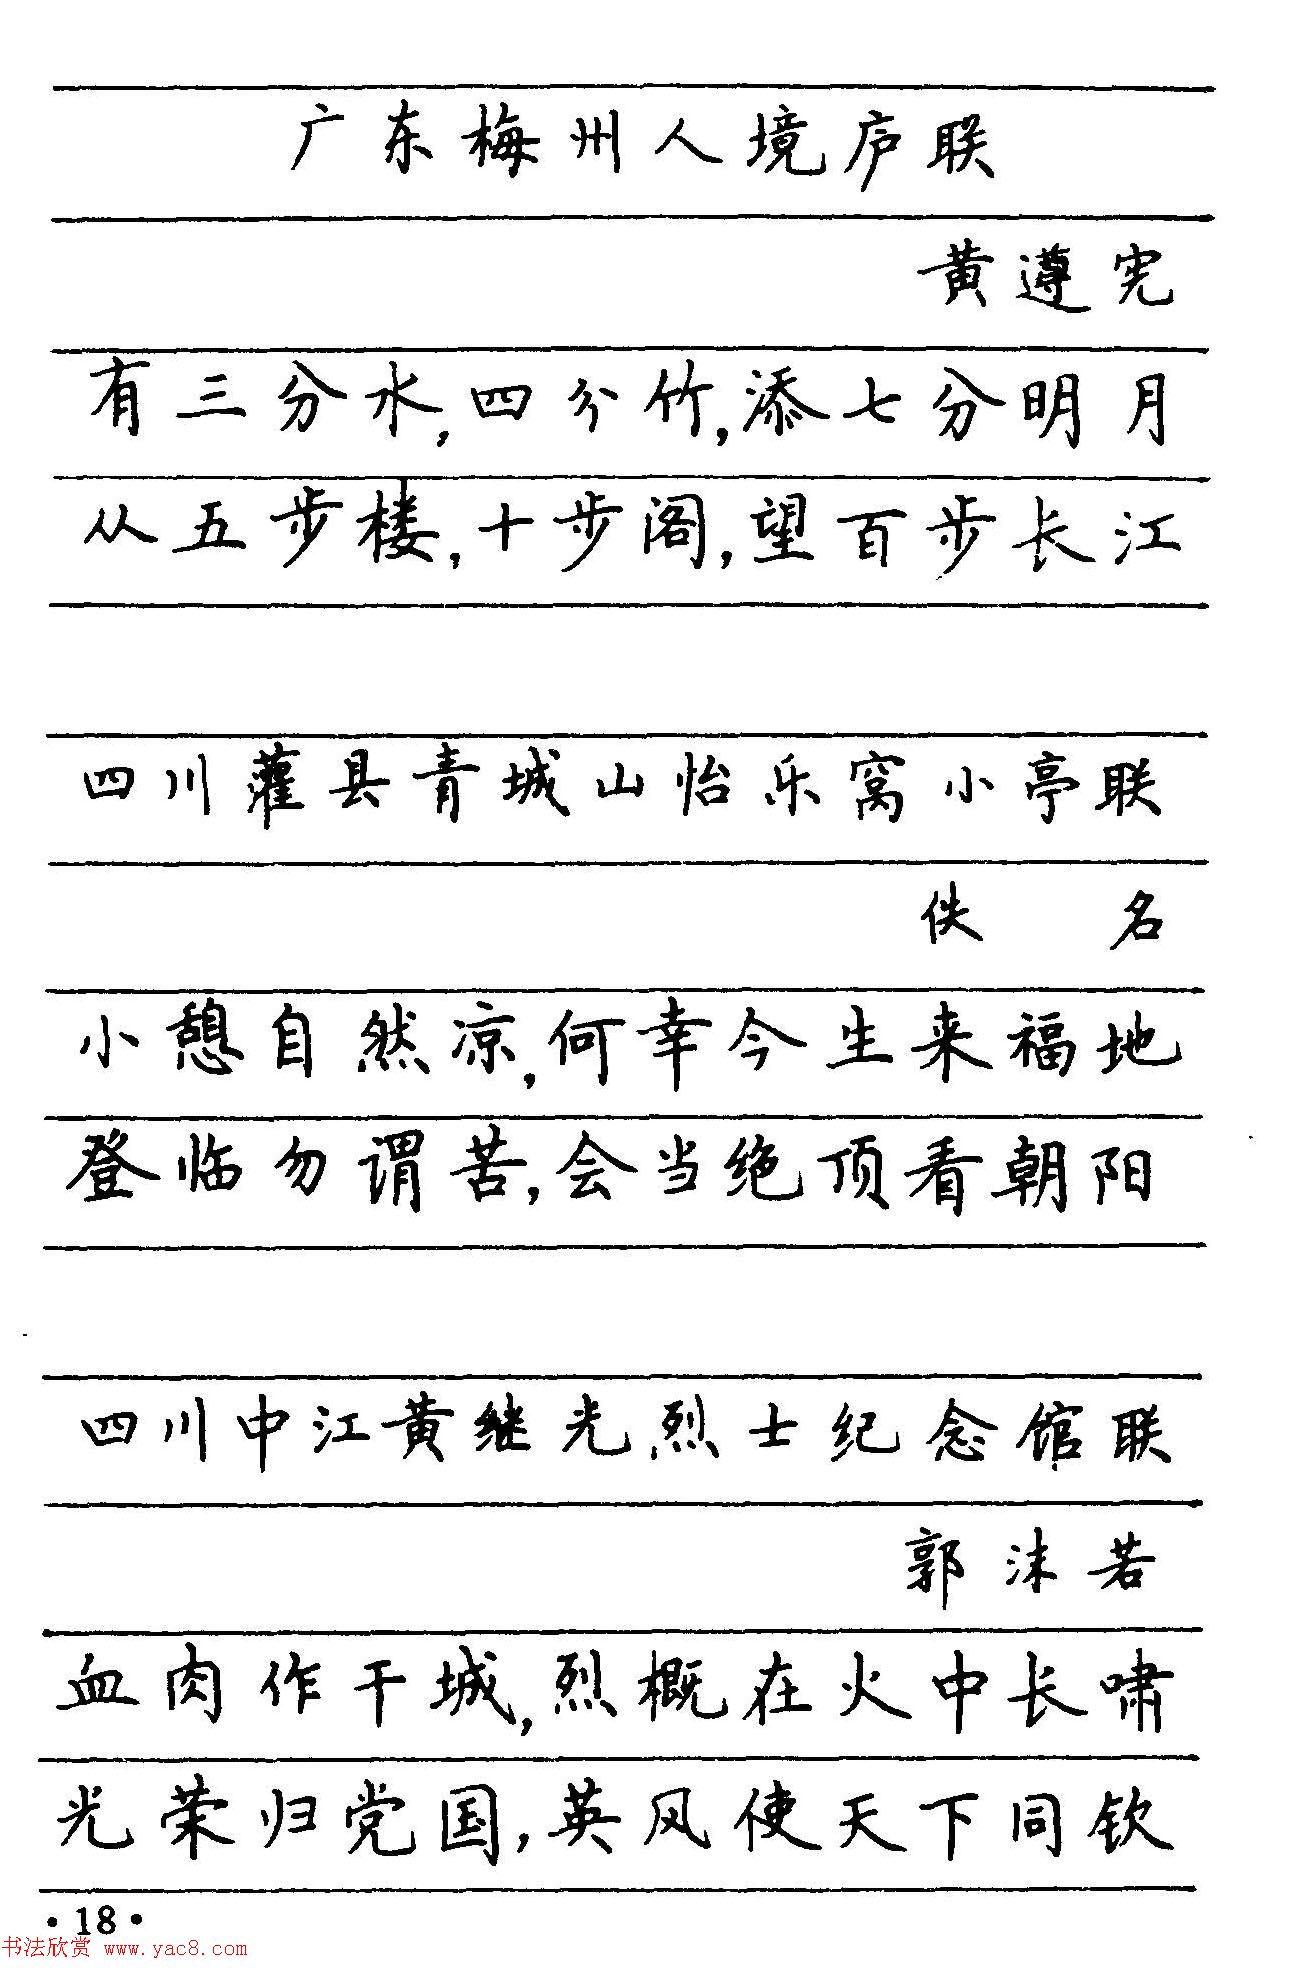 广东梅州人境庐联
黄遵宪
有三分水,四分竹,添七分明月
从五步楼,十步阁,望百步长江
四川灌县青城山怡乐窝小亭联
佚 名
小憩自然凉,何幸今生来福地
登临勿谓苦,会当绝顶看朝阳
四川中江黄继光烈士纪念馆联
郭沫若
血肉作干城,烈概在火中长啸
光荣归党国,英风使天下同钦
·18·
书法欣赏 www.yac8.com